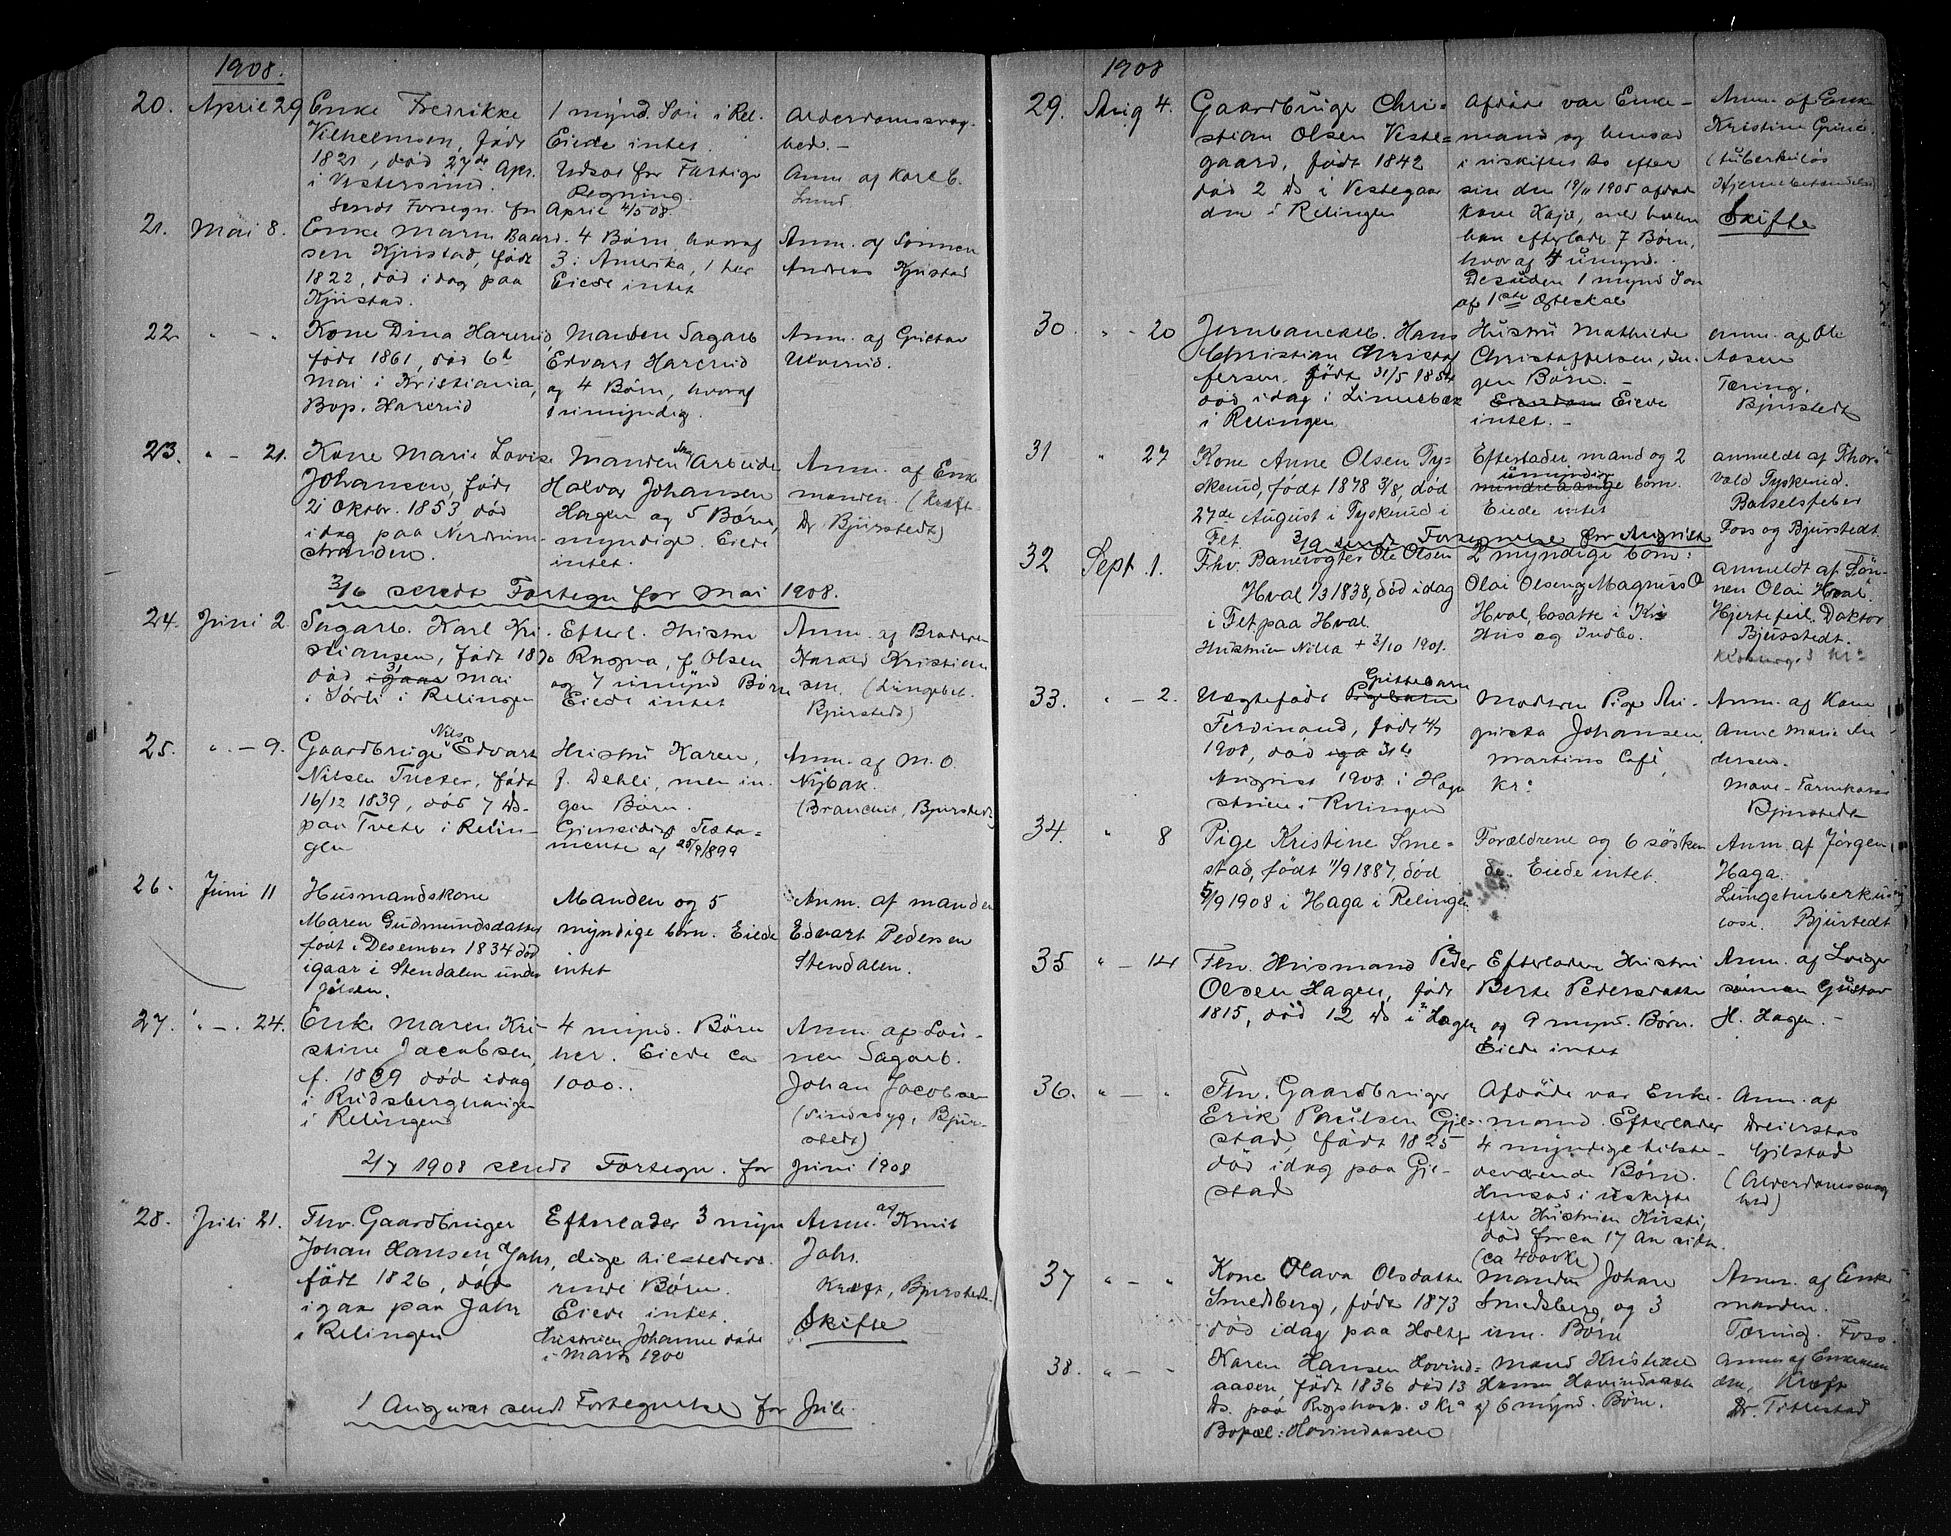 1908.
20. April 29 Enke Fredrikke
Vilhelmsen, født
1821, død 27de Apr.
i Vestersund.
Sendt Fortegn. for
April 4/5 08
1 mynd. Søn i Rel.
Eiede intet.
Udsat for Fattige
Regning.
Alderdomssvag-
hed. -
Anm. af Karl C.
Lund.
21. Mai 8. Enke Maren Baard-
sen Kjustad, født
1822, død idag paa
Kjustad.
4 Børn, hvoraf
3 i Amerika, 1 her
Eiede intet
Anm. af Sønnen
Andreas Kjustad
22 " - " Kone Dina Harerud
født 1861, død 6te
Mai i Kristiania,
Bop. Harerud
Manden Sagarb.
Edvart Harerud
og 4 Børn, hvoraf
umyndig.
Anm. af Gustav
Ulverud.
23. " - 21. Kone Marie Lovise
Johansen, født
21 Oktbr. 1853 død
idag paa Nerdrum-
stranden.
Manden Sag Arbeider
Halvor Johansen
Hagen og 5 Børn,
myndige. Eiede
intet.
Anm. af Enke
manden. (Kræft
Dr. Bjurstedt)
3/6 sendt Fortegn for Mai 1908.
24. Juni 2 Sagarb. Karl Kri-
stiansen, født 1870
død igaar 31 Mai
i Sørli i Relingen
Efterl. Hustru
Ragna, f. Olsen
og 7 umynd Børn
Eiede intet
Anm. af Broderen
Harald Kristian
sen. (Lungebet.
Bjurstedt)
25. " - 9. Gaardbruger Nils Edvart
Nilsen Tveter, født
16/12 1839, død 7 ds
paa Tveter i Relin-
gen
Hustru Karen,
f. Dehli, men in-
gen Børn.
Gjensidigt Testa-
mente af 25/9 1899
Anm. af M. O.
Nybak.
(Brandent, Bjurstedt)
26. Juni 11 Husmandskone
Maren Gudmundsdatter
født i Desember 1834 død
igaar i Stendalen under
Jølsen.
Manden og 5
myndige børn. Eiede
intet
Anm. af manden
Edvart Pedersen
Stendalen.
27. " - 24. Enke Maren Kri-
stine Jacobsen,
f. 1839 død idag
i Rudsberghaugen
i Relingen
4 mynd. Børn
her. Eiede ca
1000..
Anm. af Søn-
nen Sagarb.
Johan Jacobsen
(Sindssyg, Bjur-
stedt)
2/7 1908 sendt Fortegn. for Juni 1908
28. Juli 21. Fhv. Gaardbruger
Johan Hansen Jahr,
født 1826, død
igaar paa Jahr
i Relingen
Efterlader 3 myn
dige tilstedevæ-
rende Børn.
Eiede intet.
Hustruen Johanne døde
i Marts 1900
Anm. af Knut
Jahr.
Kræft, Bjurstedt.
Skifte
1 August sendt Fortegnelse for Juli.
1908
29. Aug 4. Gaardbruger Chri-
stian Olsen Veste-
gaard, født 1842
død 2 ds i Vestegaar
den i Relingen
Afdøde var Enke-
mand og hensad
i uskiftet bo efter
sin den 19/11 1905 afdøde
Kone Kaja, med hvem
han efterlod 7 Børn,
hvoraf 4 umynd.
Desuden 1 mynd Søn
af 1ste Ægteskab
Anm. af Enke
Kristine
(tuberkuløs
Hjernebetændelse)
Skifte
30. " - 20 Jernbanearb. Hans
Christian Christof
fersen, født 31/5 1854
død idag i Limerbæk
i Relingen
Hustru Mathilde
Christoffersen, In-
gen Børn. -
Eiendom Eiede
intet. -
Anm. af Ole
Aasen
Tæring.
Bjurstedt
31 " 27 Kone Anne Olsen Ty-
skerud, født 1878 3/8, død
27de August i Tyskerud i
Fet.
Efterlader mand og 2
umyndige
mindreaarige børn.
Eiede intet
anmeldt af Thor-
vald Tyskerud.
Barselsfeber
Foss og Bjurstedt.
3/9 sendt Fortegnelse for August
32 Sept. 1. Fhv. Banevogter Ole Olsen
Hval 1/3 1838, død idag
i Fet paa Hval.
Hustruen Nilla + 3/10 1901.
2 myndige børn:
Olai Olsen og Magnus O
Hval bosatte i Kra
Hus og Indbo.
anmeldt af Søn-
nen Olai Hval.
Hjertefeil. Doktor
Bjurstedt.
33. " - 2. Uægtefødt Guttebarn
Pigebarn
Ferdinand, født 4/7
1908, død igå 31te
August 1908 i Haga
struen i Relingen
Modren Pige Au-
gusta Johansen,
Martins Café,
Kra
Anm. af Kone
Anne Marie An
dersen.
Mave-Tarmkatar
Bjurstedt
34. " 8 Pige Kristine Sme-
stad, født 11/9 1887, død
5/9 1908 i Haga i Relingen
Forældrene og 6 søsken
de. Eiede intet.
Anm. af Jørgen
Haga.
Lungetuberku-
lose. Bjurstedt
35 " - 14 Fhv. Husmand Peder
Olsen Hagen, født
1815, død 12 ds i Hagen
Efterlader Hustru
Berte Pedersdatter
og 9 mynd. Børn.
Eiede intet
Anm. af Sviger
sønnen Gustav
H. Hagen. -
36. " - " Fhv. Gaardbruger
Erik Paulsen Gje-
stad, født 1825
død idag paa Gje-
stad
Afdøde var Enke-
mand. Efterlader
4 myndige tilste-
deværende Børn.
Hensad i uskifte
efter Hustruen Kirsti,
død for ca 17 Aar siden.
(ca 4000 Kr)
Anm. af
Gjestad
(Alderdomssvag
hed)
37 " - " Kone Olava Olsdatter
Smedsberg, født 1873
død idag paa Holter
Manden Johan
Smedsberg og 3
um. Børn
Anm. af Enke
manden.
Tæring. Foss
38. " - " Karen Hansen Hovind-
aasen, født 1836 død 13
ds. paa Rigshosp. i Kra
Bopæl: Hovindaasen
Mand Kristian
Hansen Hovindaasen
og 6 mynd. Børn.
Anm. af Enkeman
den, Kræft
Dr. Tillestad